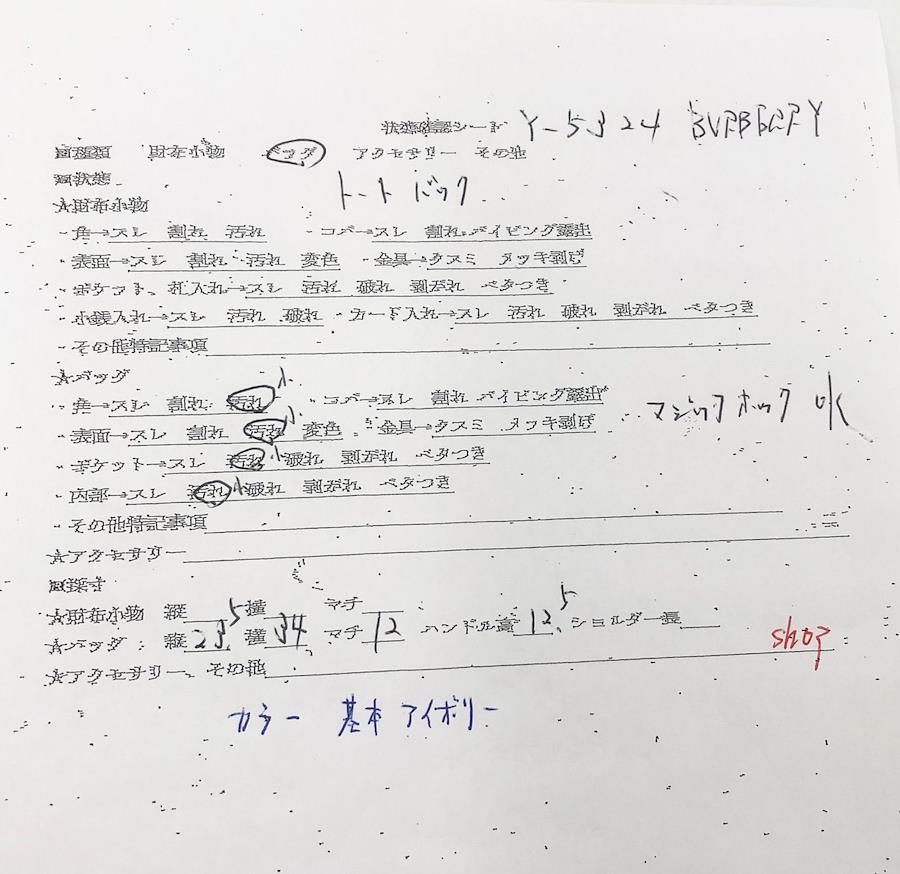 状態確認シート Y-5324 BURBERRY
■種類 財布小物 バッグ アクセサリー その他
■状態 トートバック
★財布小物
・角→スレ 割れ 汚れ ・コバ→スレ 割れ パイピング露出
・表面→スレ 割れ 汚れ 変色 ・金具→クスミ メッキ剥げ
・ポケット、札入れ→スレ 汚れ 破れ 剥がれ ベタつき
・小銭入れ→スレ 汚れ 破れ ・カード入れ→スレ 汚れ 破れ 剥がれ ベタつき
・その他特記事項
★バッグ
・角→スレ 割れ 汚れ 小 ・コバ→スレ 割れ パイピング露出
・表面→スレ 割れ 汚れ 小 変色 ・金具→クスミ メッキ剥げ マジックホック
・ポケット→スレ 汚れ 小 破れ 剥がれ ベタつき
・内部→スレ 汚れ 小 破れ 剥がれ ベタつき
・その他特記事項
★アクセサリー
■採寸
★財布小物 縦 横 マチ
★バッグ：縦 23.5 横 34 マチ 12 ハンドル高 12.5 ショルダー長
shop
★アクセサリー、その他
カラー 基本 アイボリー